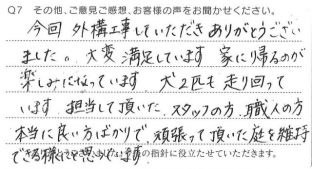 Q7 その他、ご意見ご感想、お客様の声をお聞かせください。
今回 外構工事していただき ありがとうござい
ました。大変 満足しています 家に帰るのが
楽しみになっています 犬2匹も走り回って
います 担当して頂いた、スタッフの方、職人の方
本当に良い方ばかりで、頑張って頂いた庭を維持
できる様にと思います の指針に役立たせていただきます。